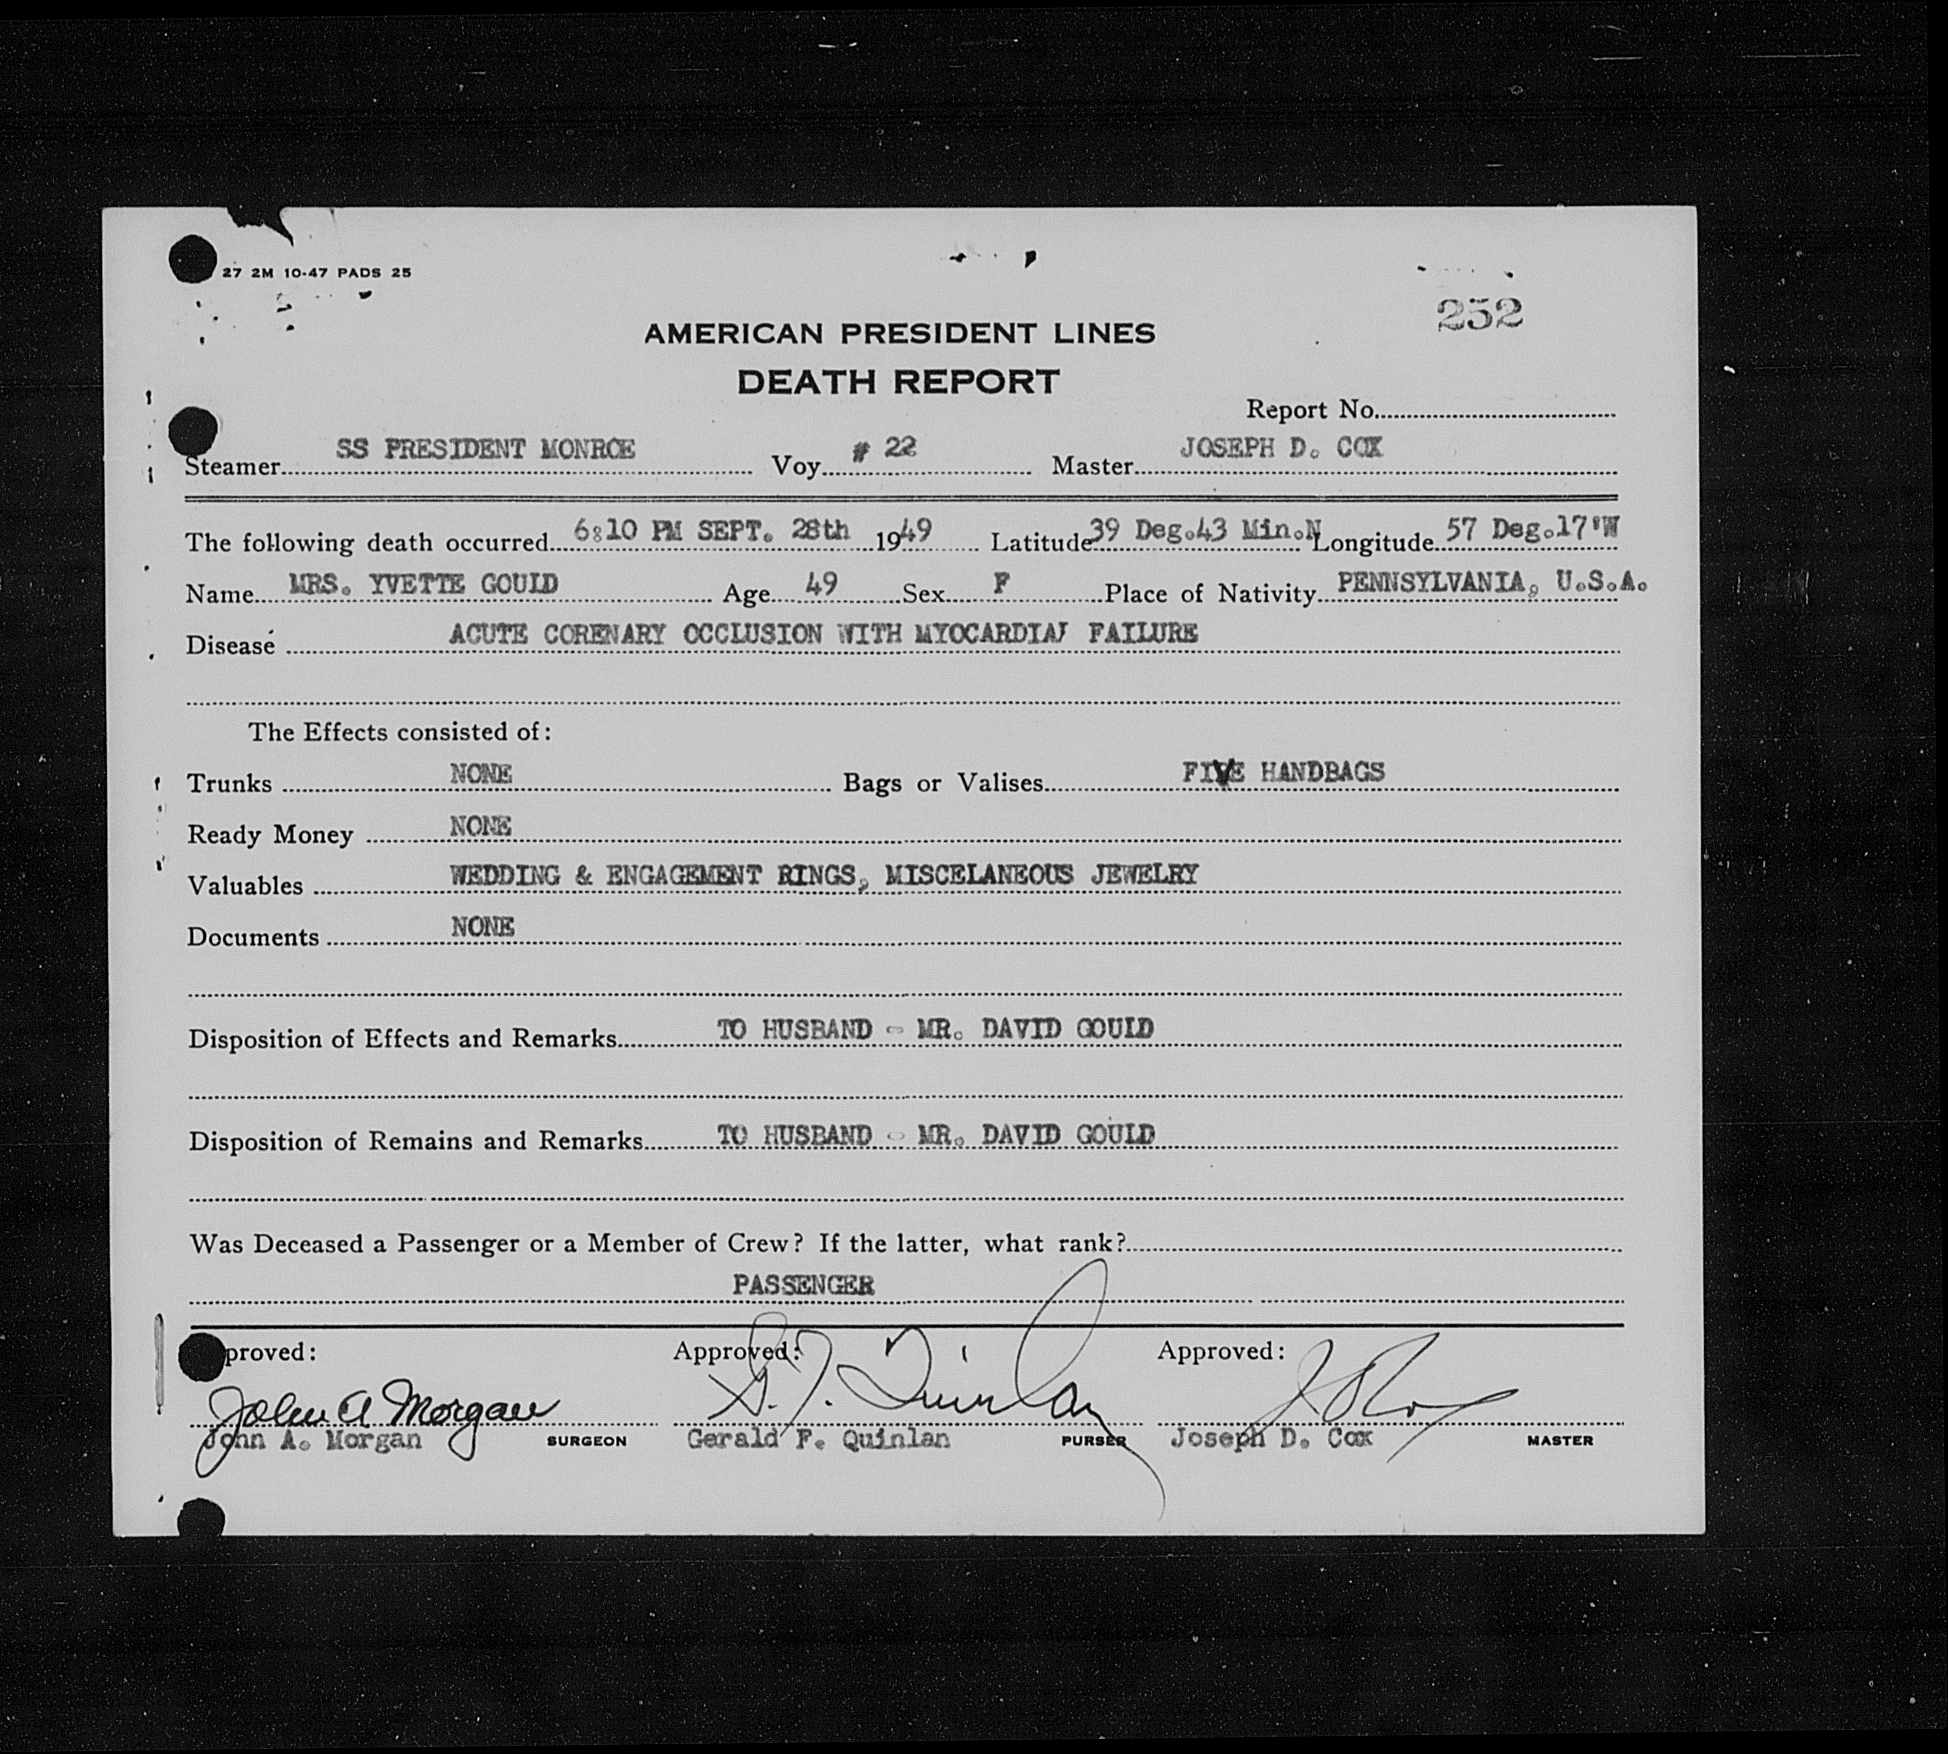 27 2M 10-47 PADS 25
252
AMERICAN PRESIDENT LINES
DEATH REPORT
Report No.
Steamer SS PRESIDENT MONROE Voy. # 22 Master JOSEPH D. COX
The following death occurred 6:10 PM SEPT. 28th 1949 Latitude 39 Deg.43 Min.N Longitude 57 Deg.17'W
Name MRS. YVETTE GOULD Age 49 Sex F Place of Nativity PENNSYLVANIA, U.S.A.
Disease ACUTE CORENARY OCCLUSION WITH MYOCARDIAL FAILURE
The Effects consisted of:
Trunks NONE Bags or Valises FIVE HANDBAGS
Ready Money NONE
Valuables WEDDING & ENGAGEMENT RINGS, MISCELANEOUS JEWELRY
Documents NONE
Disposition of Effects and Remarks TO HUSBAND - MR. DAVID GOULD
Disposition of Remains and Remarks TO HUSBAND - MR. DAVID GOULD
Was Deceased a Passenger or a Member of Crew? If the latter, what rank?
PASSENGER
proved: Approved: Approved:
John A Morgan G. F. Quinlan J D Cox
John A. Morgan SURGEON Gerald F. Quinlan PURSER Joseph D. Cox MASTER